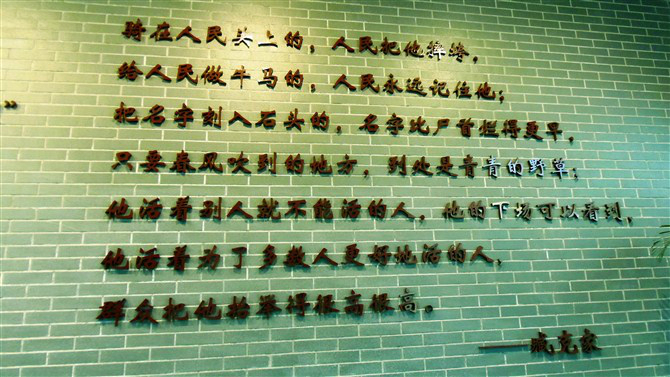 骑在人民头上的；人民把他摔垮；
给人民做牛马的；人民永远记住他；
把名字刻入石头的；名字比尸首烂得更早，
只要春风吹到的地方，到处是青青的野草；
他活着别人就不能活的人，他的下场可以看到，
他活着为了多数人更好地活的人，
群众把他抬举得很高很高。
——臧克家
”